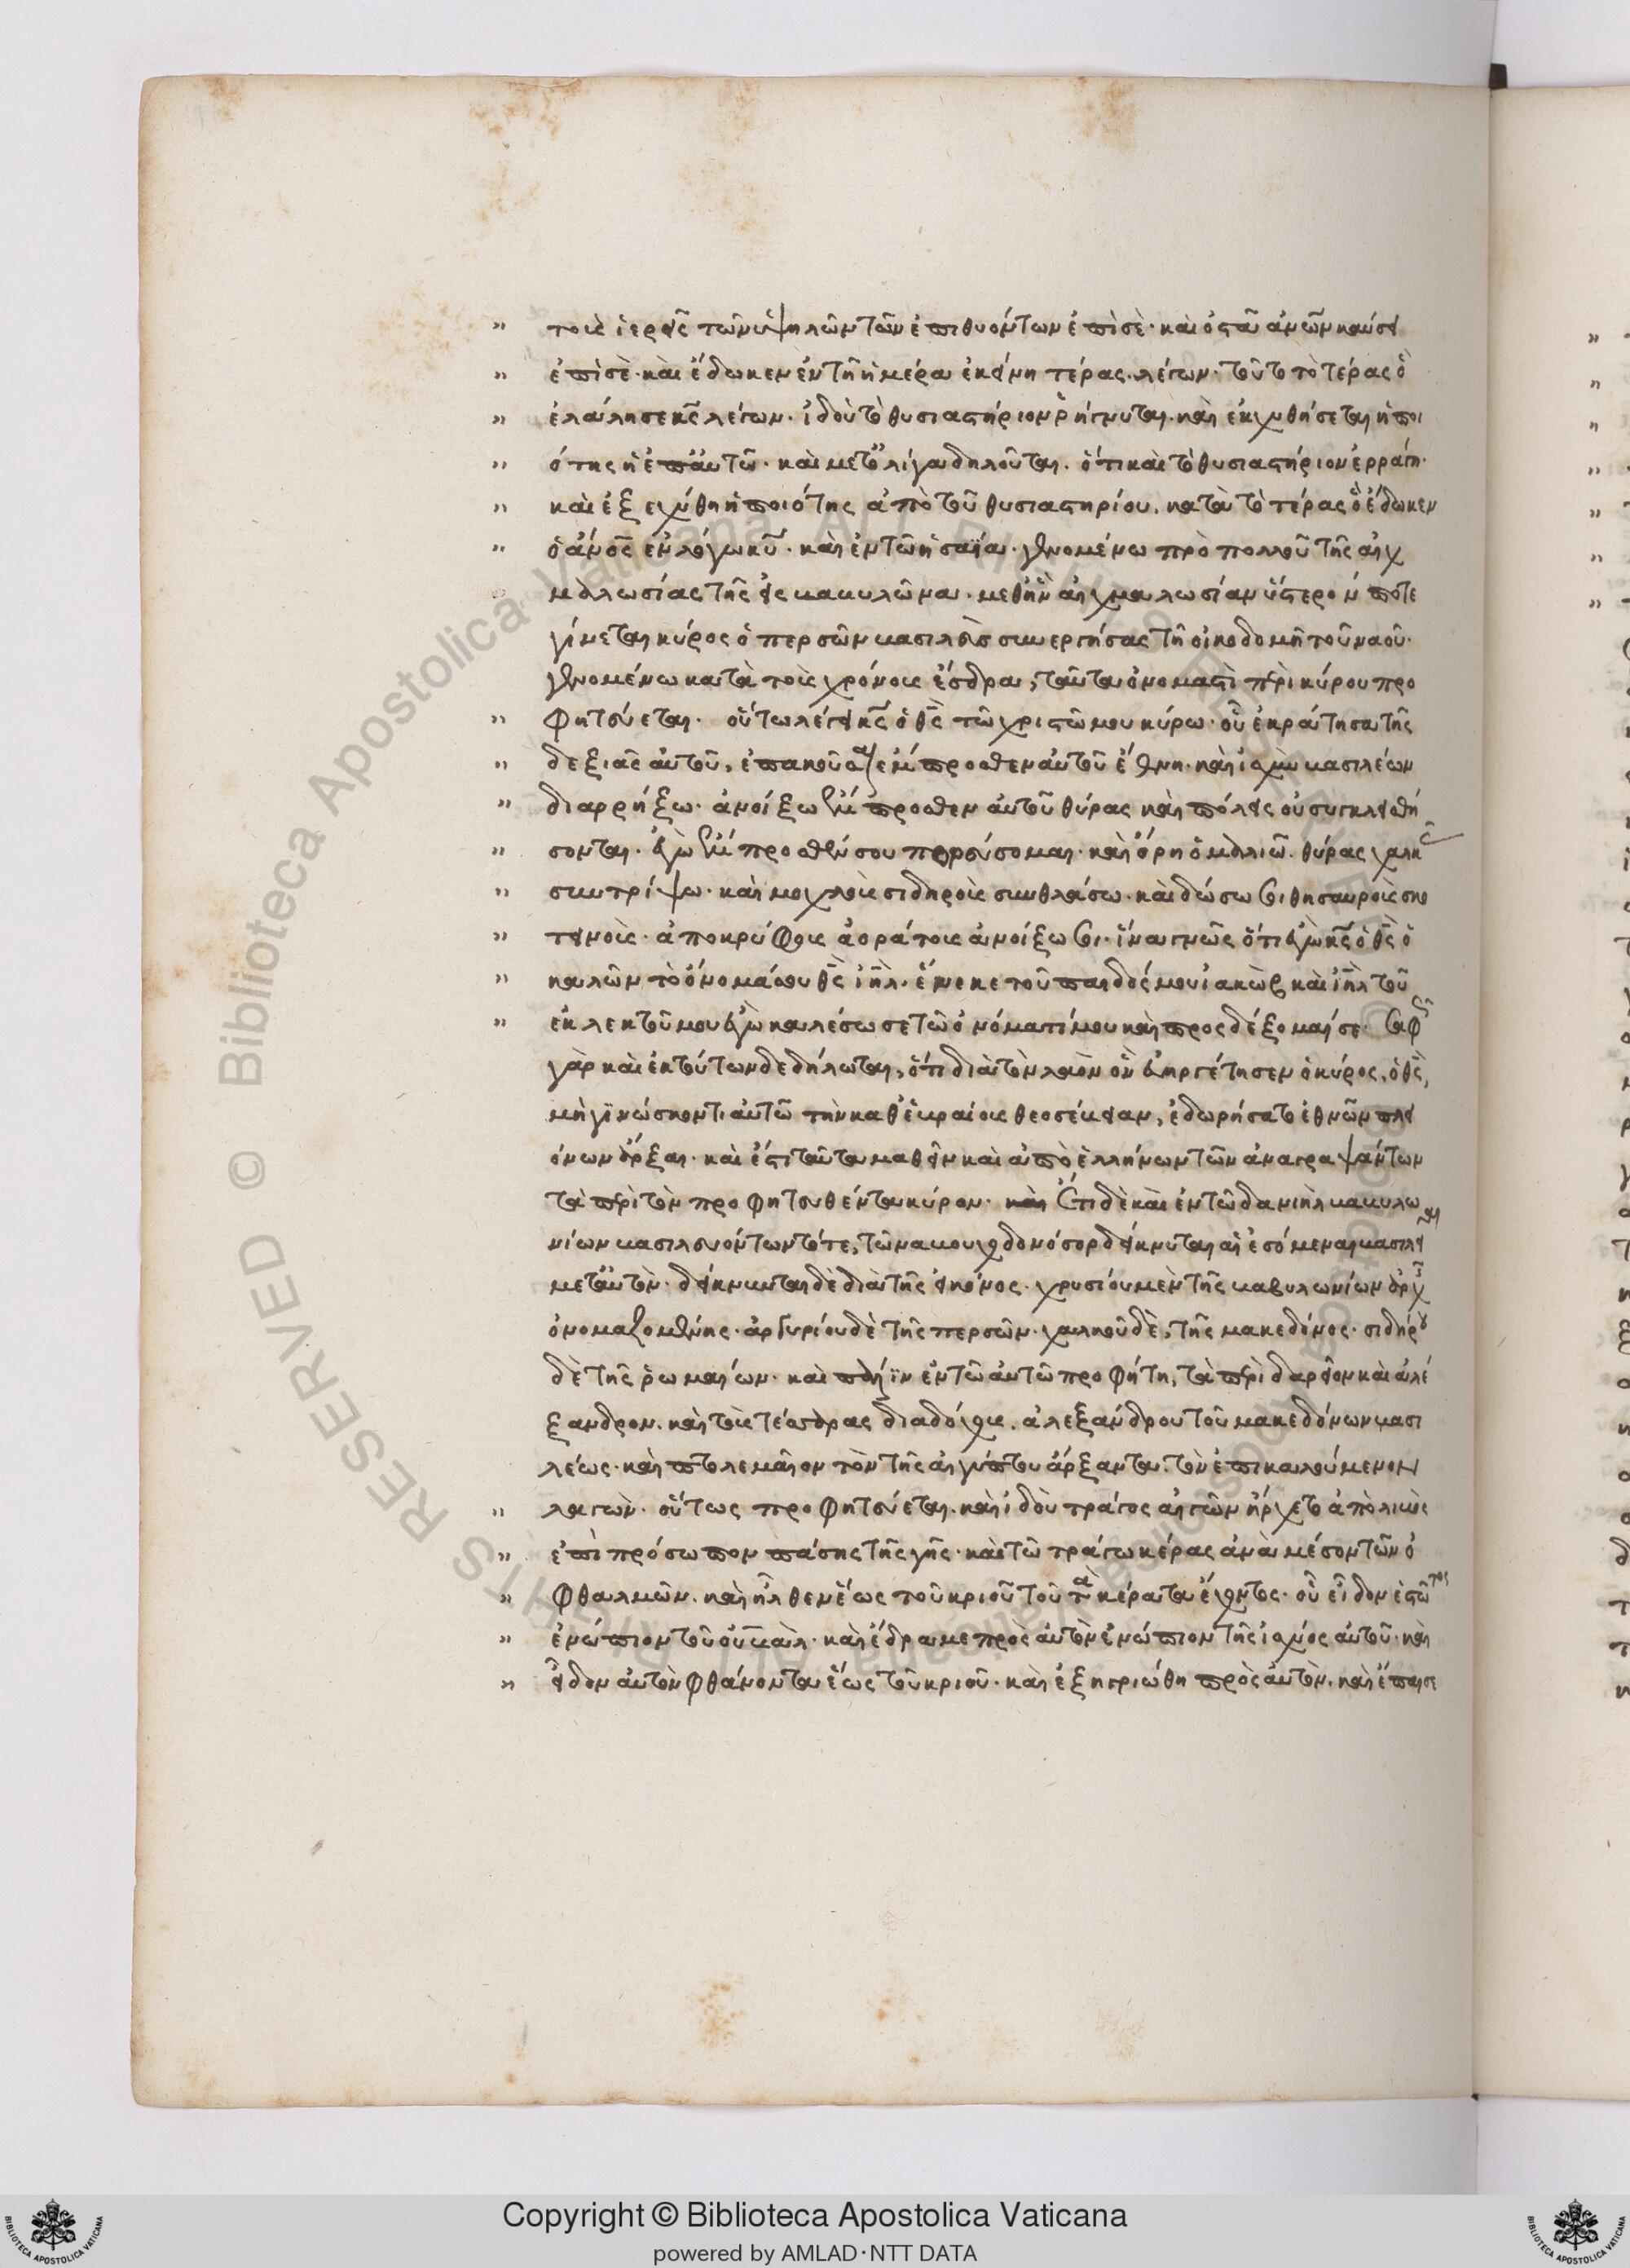 τοὺς ἱερεῖς τῶν ὑψηλῶν τῶν ἐπιθυόντων ἐπὶ σὲ· καὶ ὀστᾶ ἀνῶν καύσει
ἐπὶ σὲ· καὶ ἔδωκεν ἐν τῇ ἡμέρα ἐκείνη τέρας· λέγων· τοῦτο τὸ τέρας ὃ
ἐλάλησε κς λέγων· ἰδοὺ τὸ θυσιαστήριον ῥήγνυται· καὶ ἐκχυθήσεται ἡ ποι
ότης ἡ ἐπ' αὐτῶ· καὶ μετ' ὀλίγα δηλοῦται· ὅτι καὶ τὸ θυσιαστήριον ἐρράγη·
καὶ ἐξεχύθη ἡ ποιότης ἀπὸ τοῦ θυσιαστηρίου· κατὰ τὸ τέρας ὃ ἔδωκεν
ὁ ἀνος ἐν λόγω κυ· καὶ ἐν τῶ ἡσαΐα· γενομένω πρὸ πολλοῦ τῆς αἰχ
μαλωσίας τῆς εἰς βαβυλῶνα· μεθ' ἣν αἰχμαλωσίαν ὕστερόν ποτε
γίνεται κύρος ὁ περσῶν βασιλεὺς συνεργήσας τῇ οἰκοδομῇ τοῦ ναοῦ·
γενομένω κατὰ τοὺς χρόνους ἔσδρα, ταῦτα ὀνομαστὶ περὶ κύρου προ
φητεύεται· οὕτω λέγει κς ὁ θς τῶ χριστῶ μου κύρω· οὗ ἐκράτησα τῆς
δεξιᾶς αὐτοῦ, ἐπακοῦσαι ἔμπροσθεν αὐτοῦ ἔθνη· καὶ ἰσχὺν βασιλέων
διαρρήξω· ἀνοίξω ἔμπροσθεν αὐτοῦ θύρας καὶ πόλεις οὐ συγκλεισθή
σονται· ἐγὼ ἔμπροσθέν σου πορεύσομαι· καὶ ὄρη ὁμαλιῶ· θύρας χαλκᾶς
συντρίψω· καὶ μοχλοὺς σιδηροὺς συνθλάσω· καὶ δώσω σοι θησαυροὺς σκο
τεινοὺς· ἀποκρύφους ἀοράτους ἀνοίξω σοι· ἵνα γνῶς ὅτι ἐγὼ κς ὁ θς ὁ
καλῶν τὸ ὄνομά σου θς ιηλ· ἕνεκε τοῦ παιδός μου ἰακὼβ καὶ ιηλ τοῦ
ἐκλεκτοῦ μου ἐγὼ καλέσω σε τῶ ὀνόματί μου καὶ προσδέξομαί σε· σαφῶς
γὰρ καὶ ἐκ τούτων δεδήλωται, ὅτι διὰ τὸν λαὸν ὃν εὐηργέτησεν ὁ κύρος, ὁ θς,
μὴ γϊνώσκοντι αὐτῶ τὴν καθ' ἑβραίους θεοσέβειαν, ἐδωρήσατο ἐθνῶν πλει
όνων ἄρξαι· καὶ ἔστι ταῦτα μαθεῖν καὶ ἀπὸ ἑλλήνων τῶν ἀναγραψάντων
τὰ περὶ τὸν προφητευθέντα κύρον· ἔτι δὲ καὶ ἐν τῶ δανιὴλ βαβυλω
νίων βασιλευόντων τότε, τῶ ναβουχοδονόσορ δείκνυται αἱ ἐσόμεναι βασιλεῖαι
μετ' αὐτὸν· δείκνυνται δὲ διὰ τῆς εἰκόνος· χρυσίου μὲν τῆς βαβυλωνίων ἀρχῆς
ὀνομαζομένης· ἀργυρίου δὲ τῆς περσῶν· χαλκοῦ δὲ, τῆς μακεδόνος· σιδήρου
δὲ τῆς ῥωμαίων· καὶ πάλϊν ἐν τῶ αὐτῶ προφήτη, τὰ περὶ δαρεῖον καὶ ἀλέ
ξανδρον· καὶ τοὺς τέσσαρας διαδόχους· ἀλεξάνδρου τοῦ μακεδόνων βασι
λέως· καὶ πτολεμαῖον τὸν τῆς αἰγύπτου ἄρξαντα· τὸν ἐπικαλούμενον
λαγὼν· οὕτως προφητεύεται· καὶ ἰδοὺ τράγος αἰγῶν ἤρχετο ἀπὸ λιβὸς
ἐπὶ πρόσωπον πάσης τῆς γῆς· καὶ τῶ τράγω κέρας ἀνὰ μέσον τῶν ὀ
φθαλμῶν· καὶ ἦλθεν ἕως τοῦ κριοῦ τοῦ τὰ κέρατα ἔχοντος· οὗ εἶδον ἑστῶτος
ἐνώπιον τοῦ οὐβὰλ· καὶ ἔδραμε πρὸς αὐτὸν ἐνώπιον τῆς ἰσχύος αὐτοῦ· καὶ
εἶδον αὐτὸν φθάνοντα ἕως τοῦ κριοῦ· καὶ ἐξηγριώθη πρὸς αὐτὸν· καὶ ἔπαισε
© Biblioteca Apostolica Vaticana
Copyright © Biblioteca Apostolica Vaticana
powered by AMLAD·NTT DATA